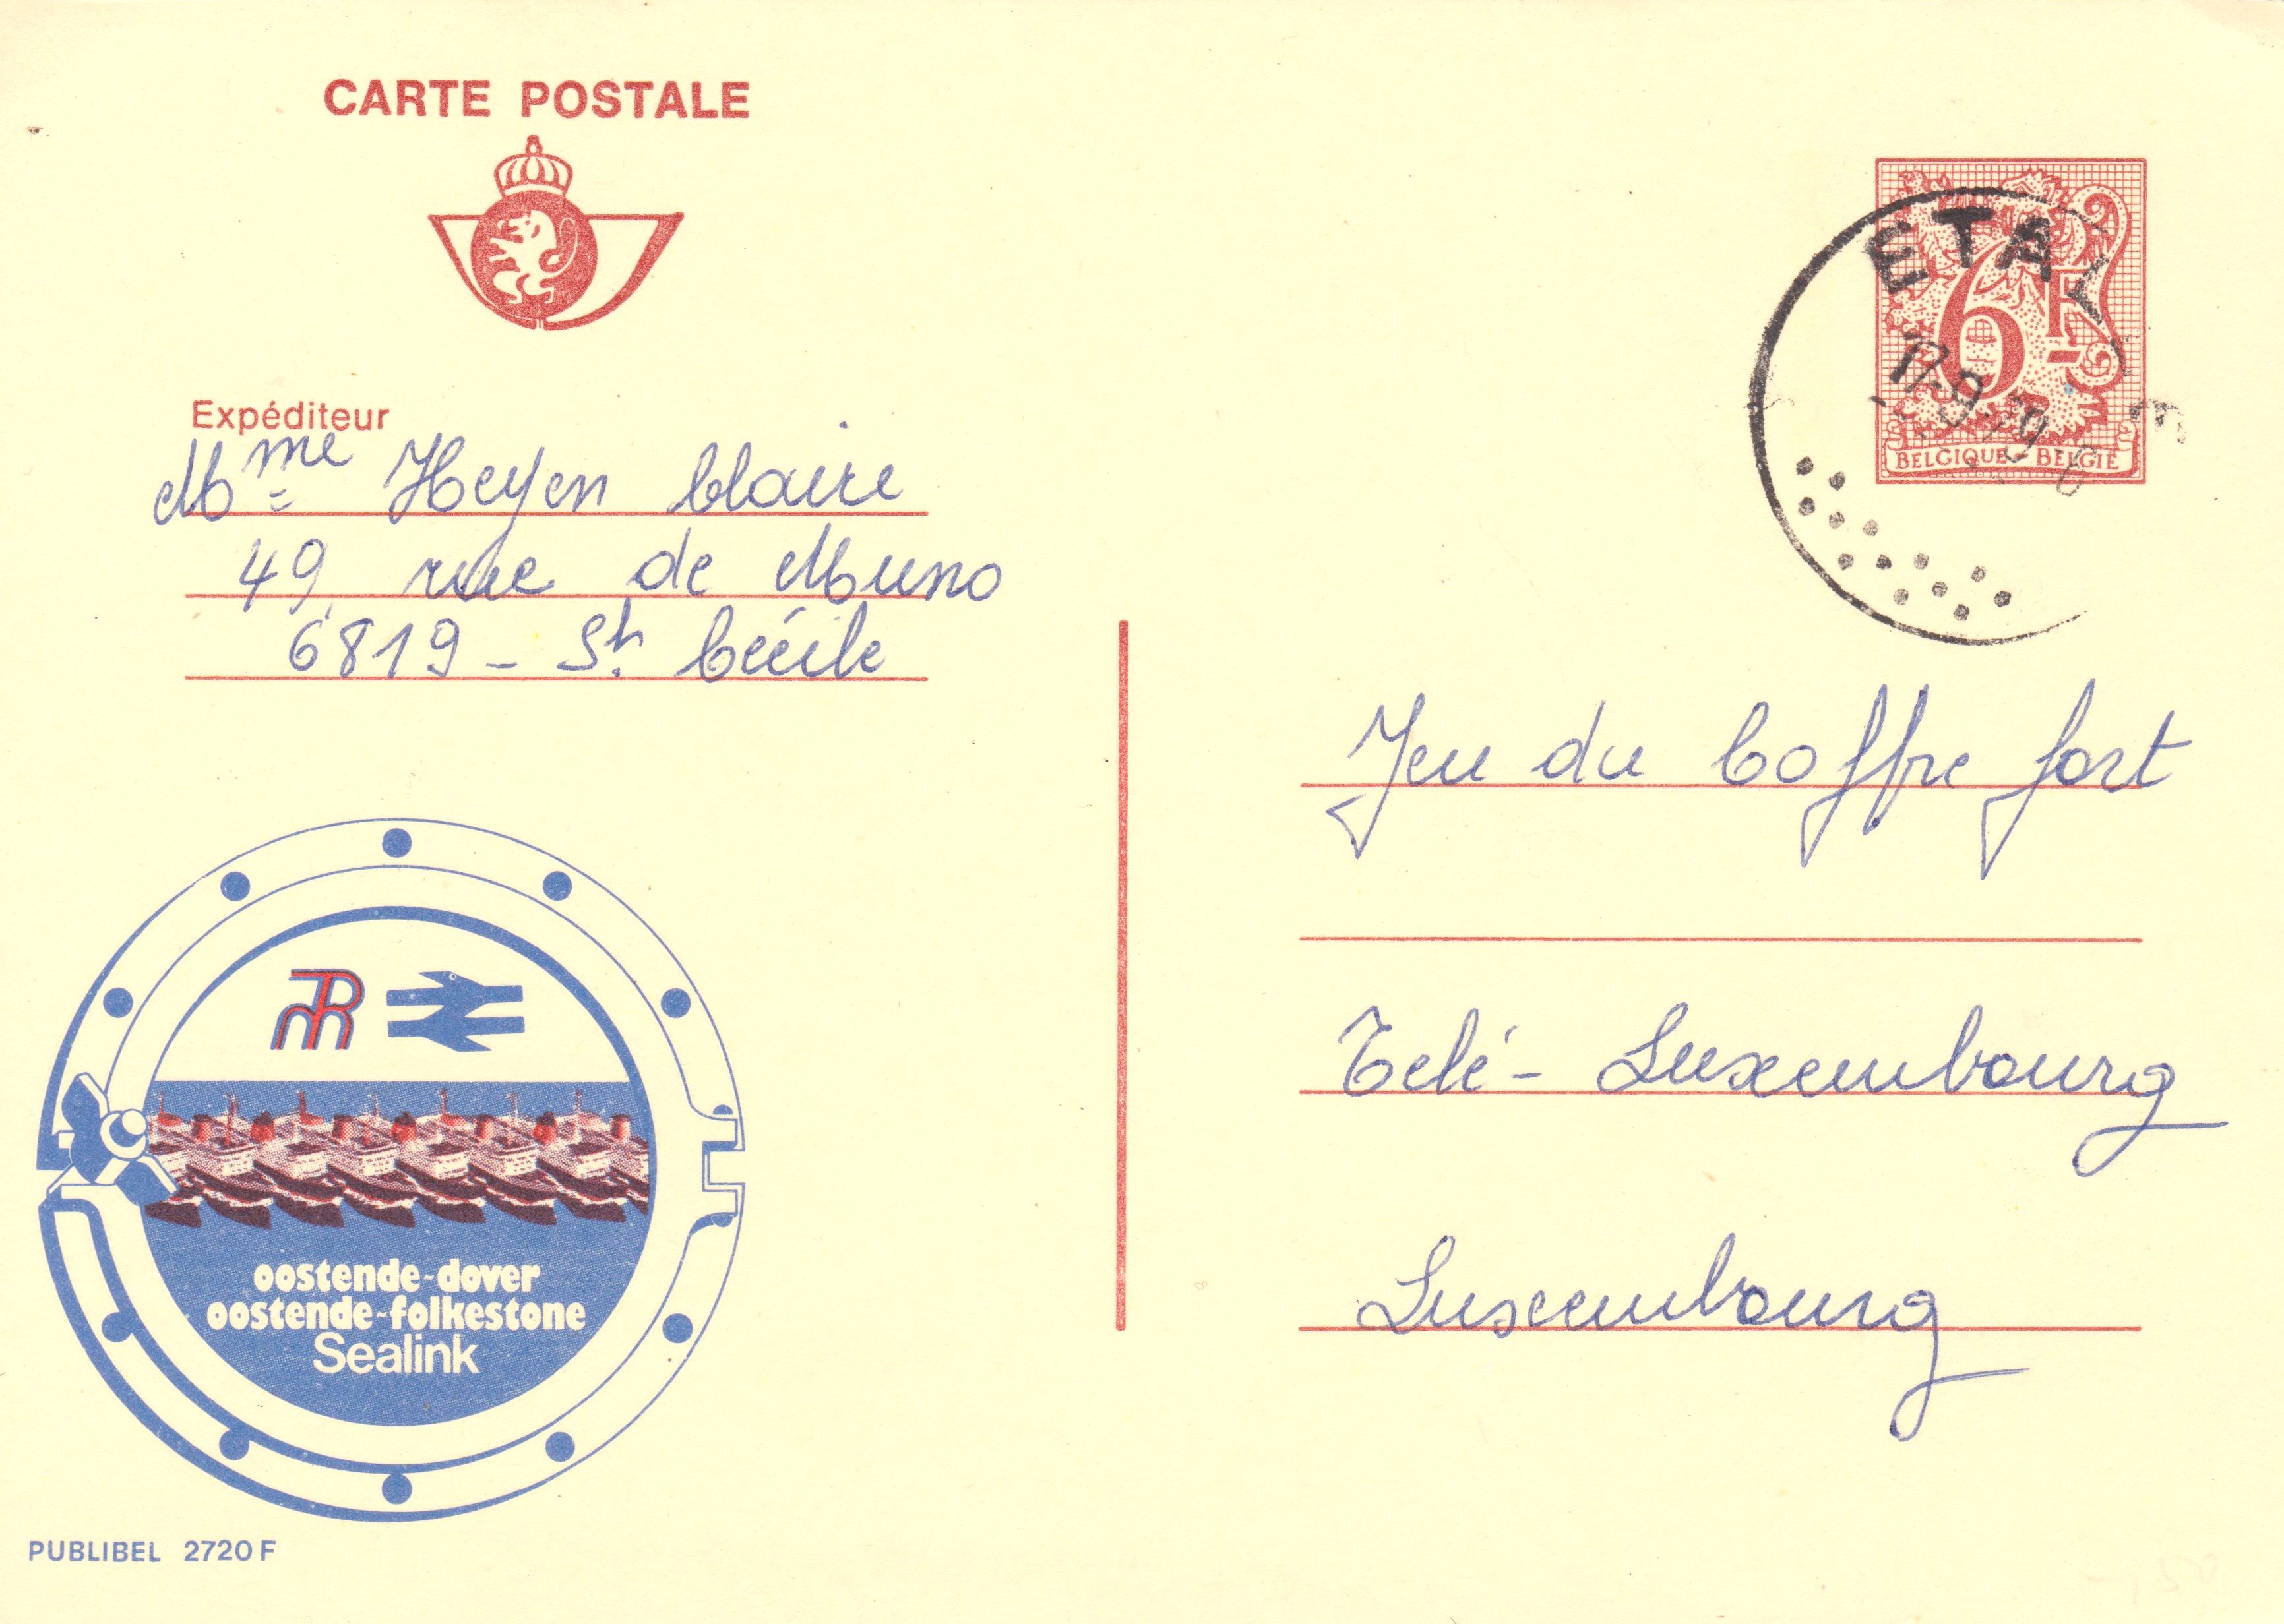 CARTE POSTALE
Expéditeur
Mme Heyen Claire
49, rue de Muno
6819 - Ste Cécile
6F
BELGIQUE - BELGIË
ETALLE
17-9-79
Jeu du Coffre fort
Télé-Luxembourg
Luxembourg
oostende-dover
oostende-folkestone
Sealink
PUBLIBEL 2720 F